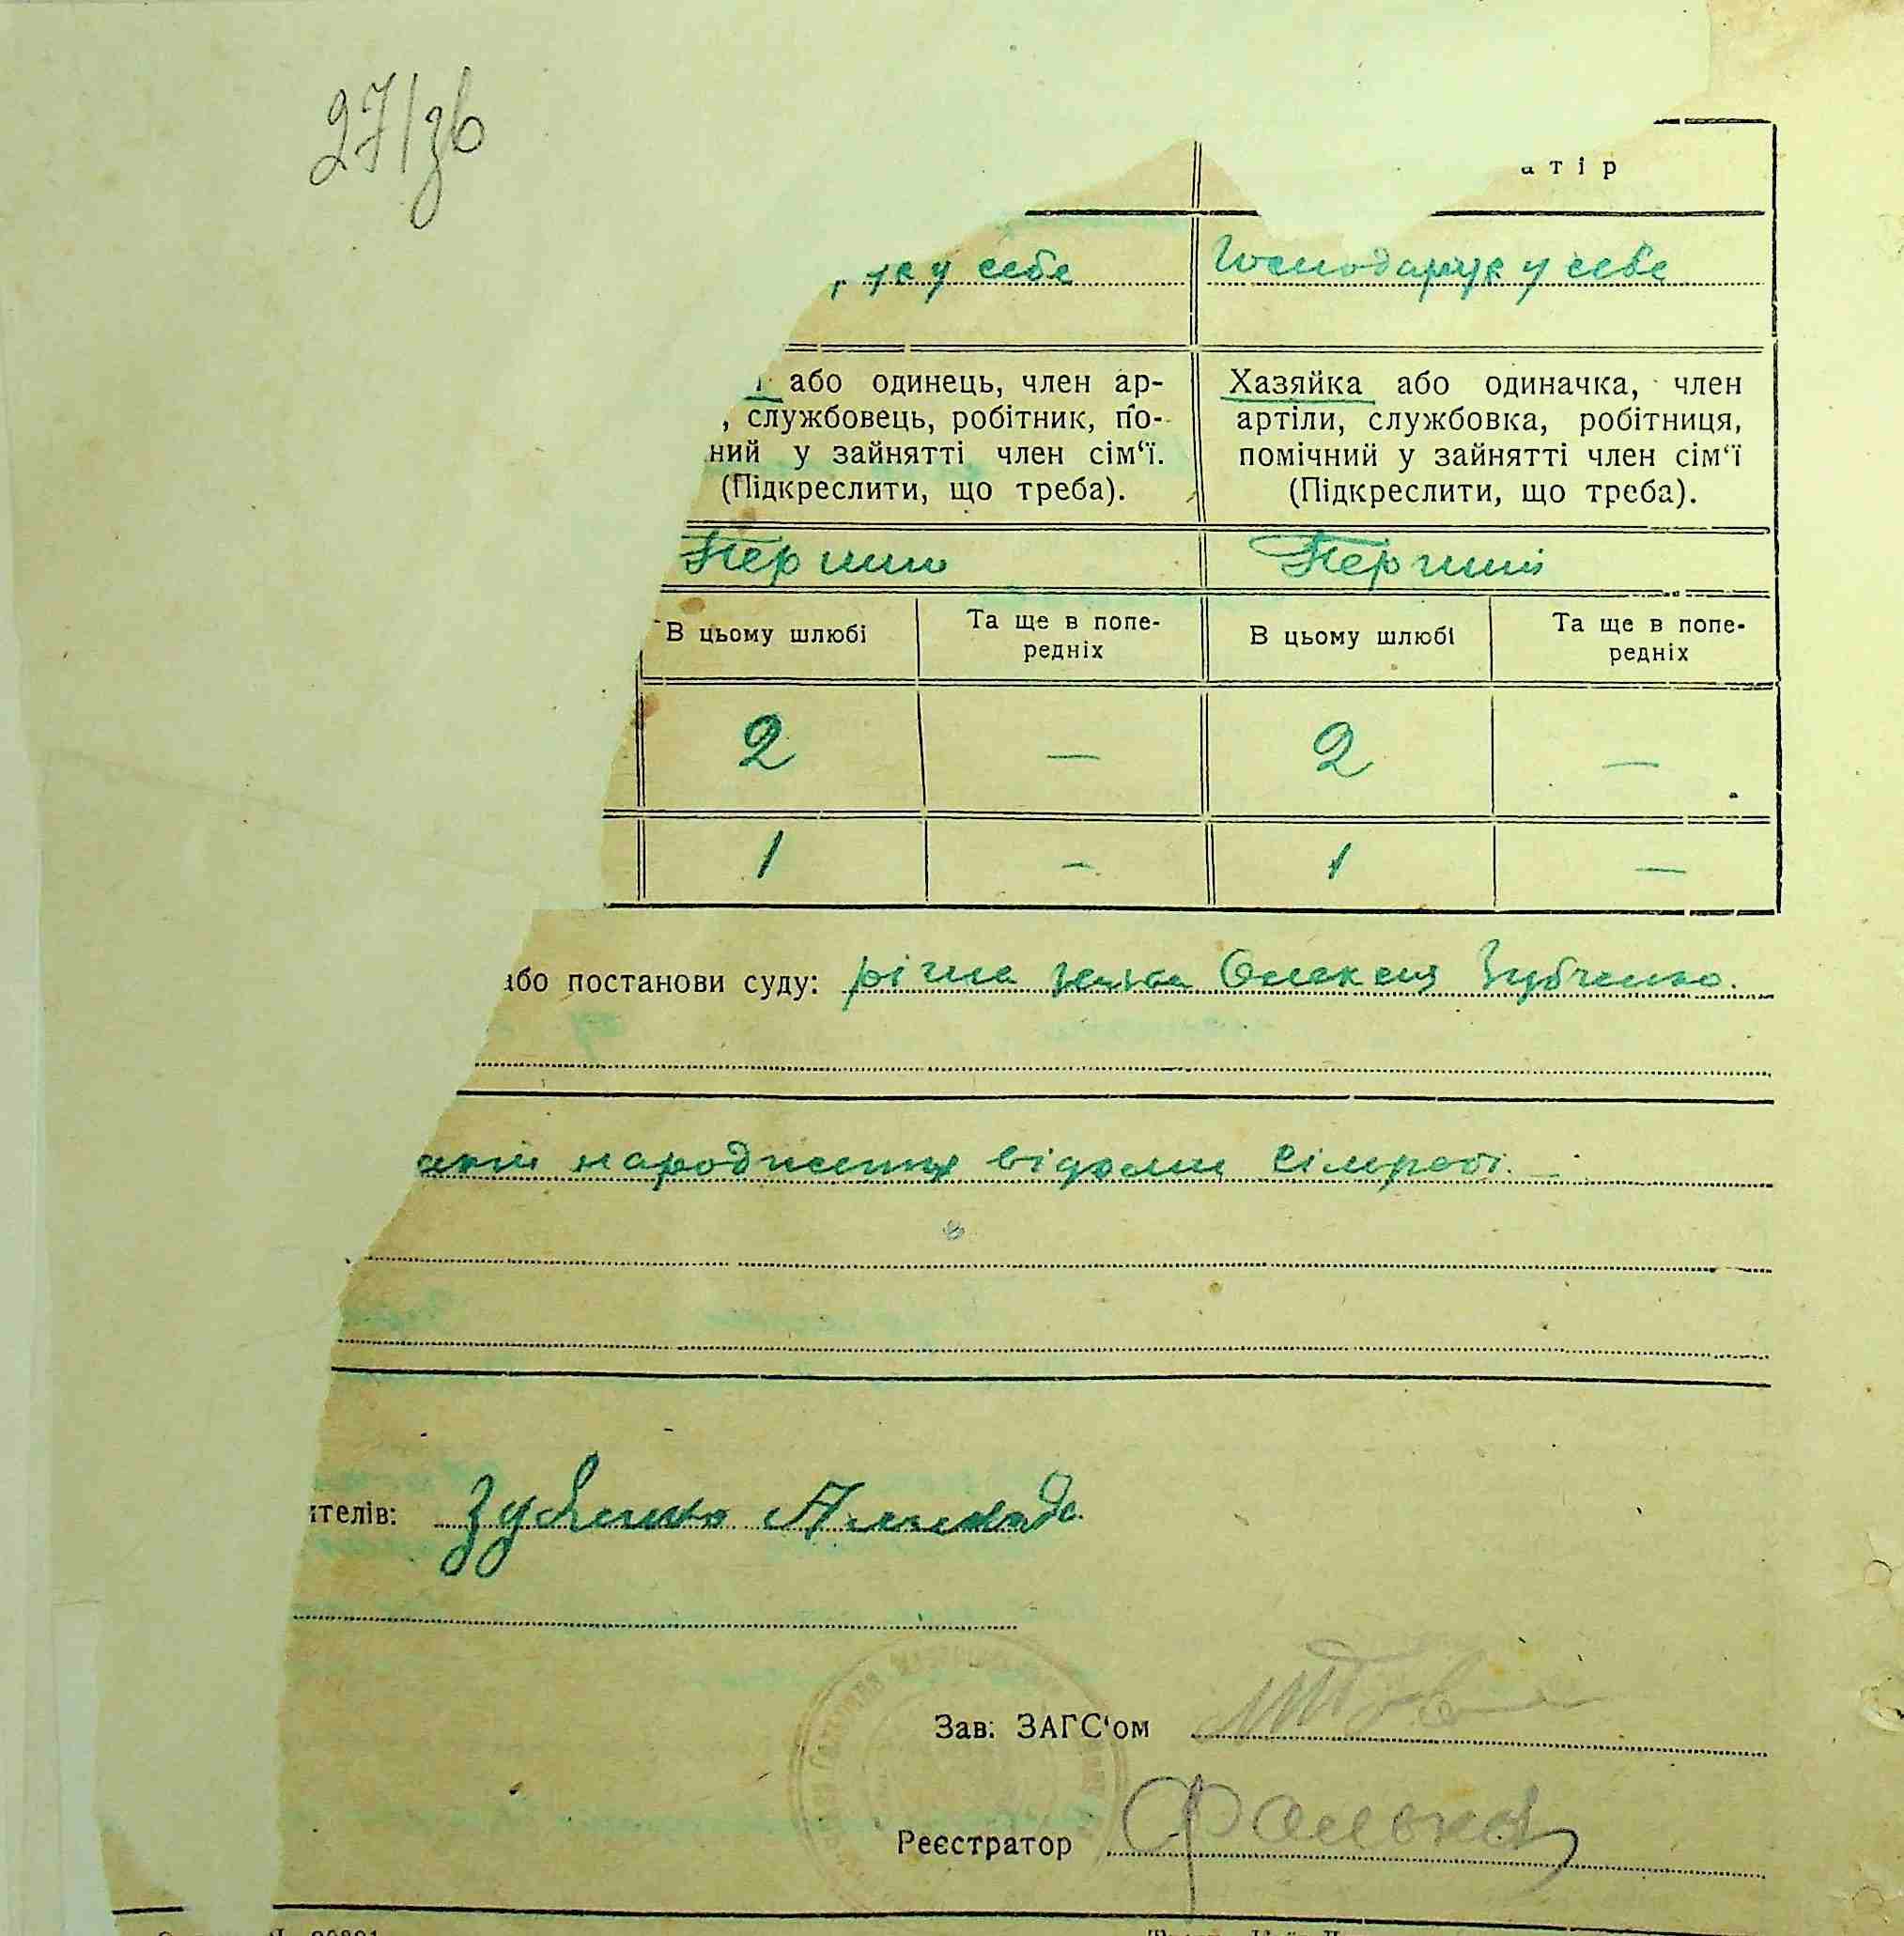 27/зв
атір
у себе Господарює у себе
або одинець, член ар-
, службовець, робітник, по-
ний у зайнятті член сім‘ї.
(Підкреслити, що треба).
Хазяйка або одиначка, член
артіли, службовка, робітниця,
помічний у зайнятті член сім‘ї
(Підкреслити, що треба).
Перший Перший
В цьому шлюбі
Та ще в попе-
редніх
В цьому шлюбі
Та ще в попе-
редніх
2 — 2 —
1 — 1 —
або постанови суду: Олексія Зубченко.
народження відомий сільраді.
ителів: Зубченко
Зав. ЗАГС‘ом
Реєстратор